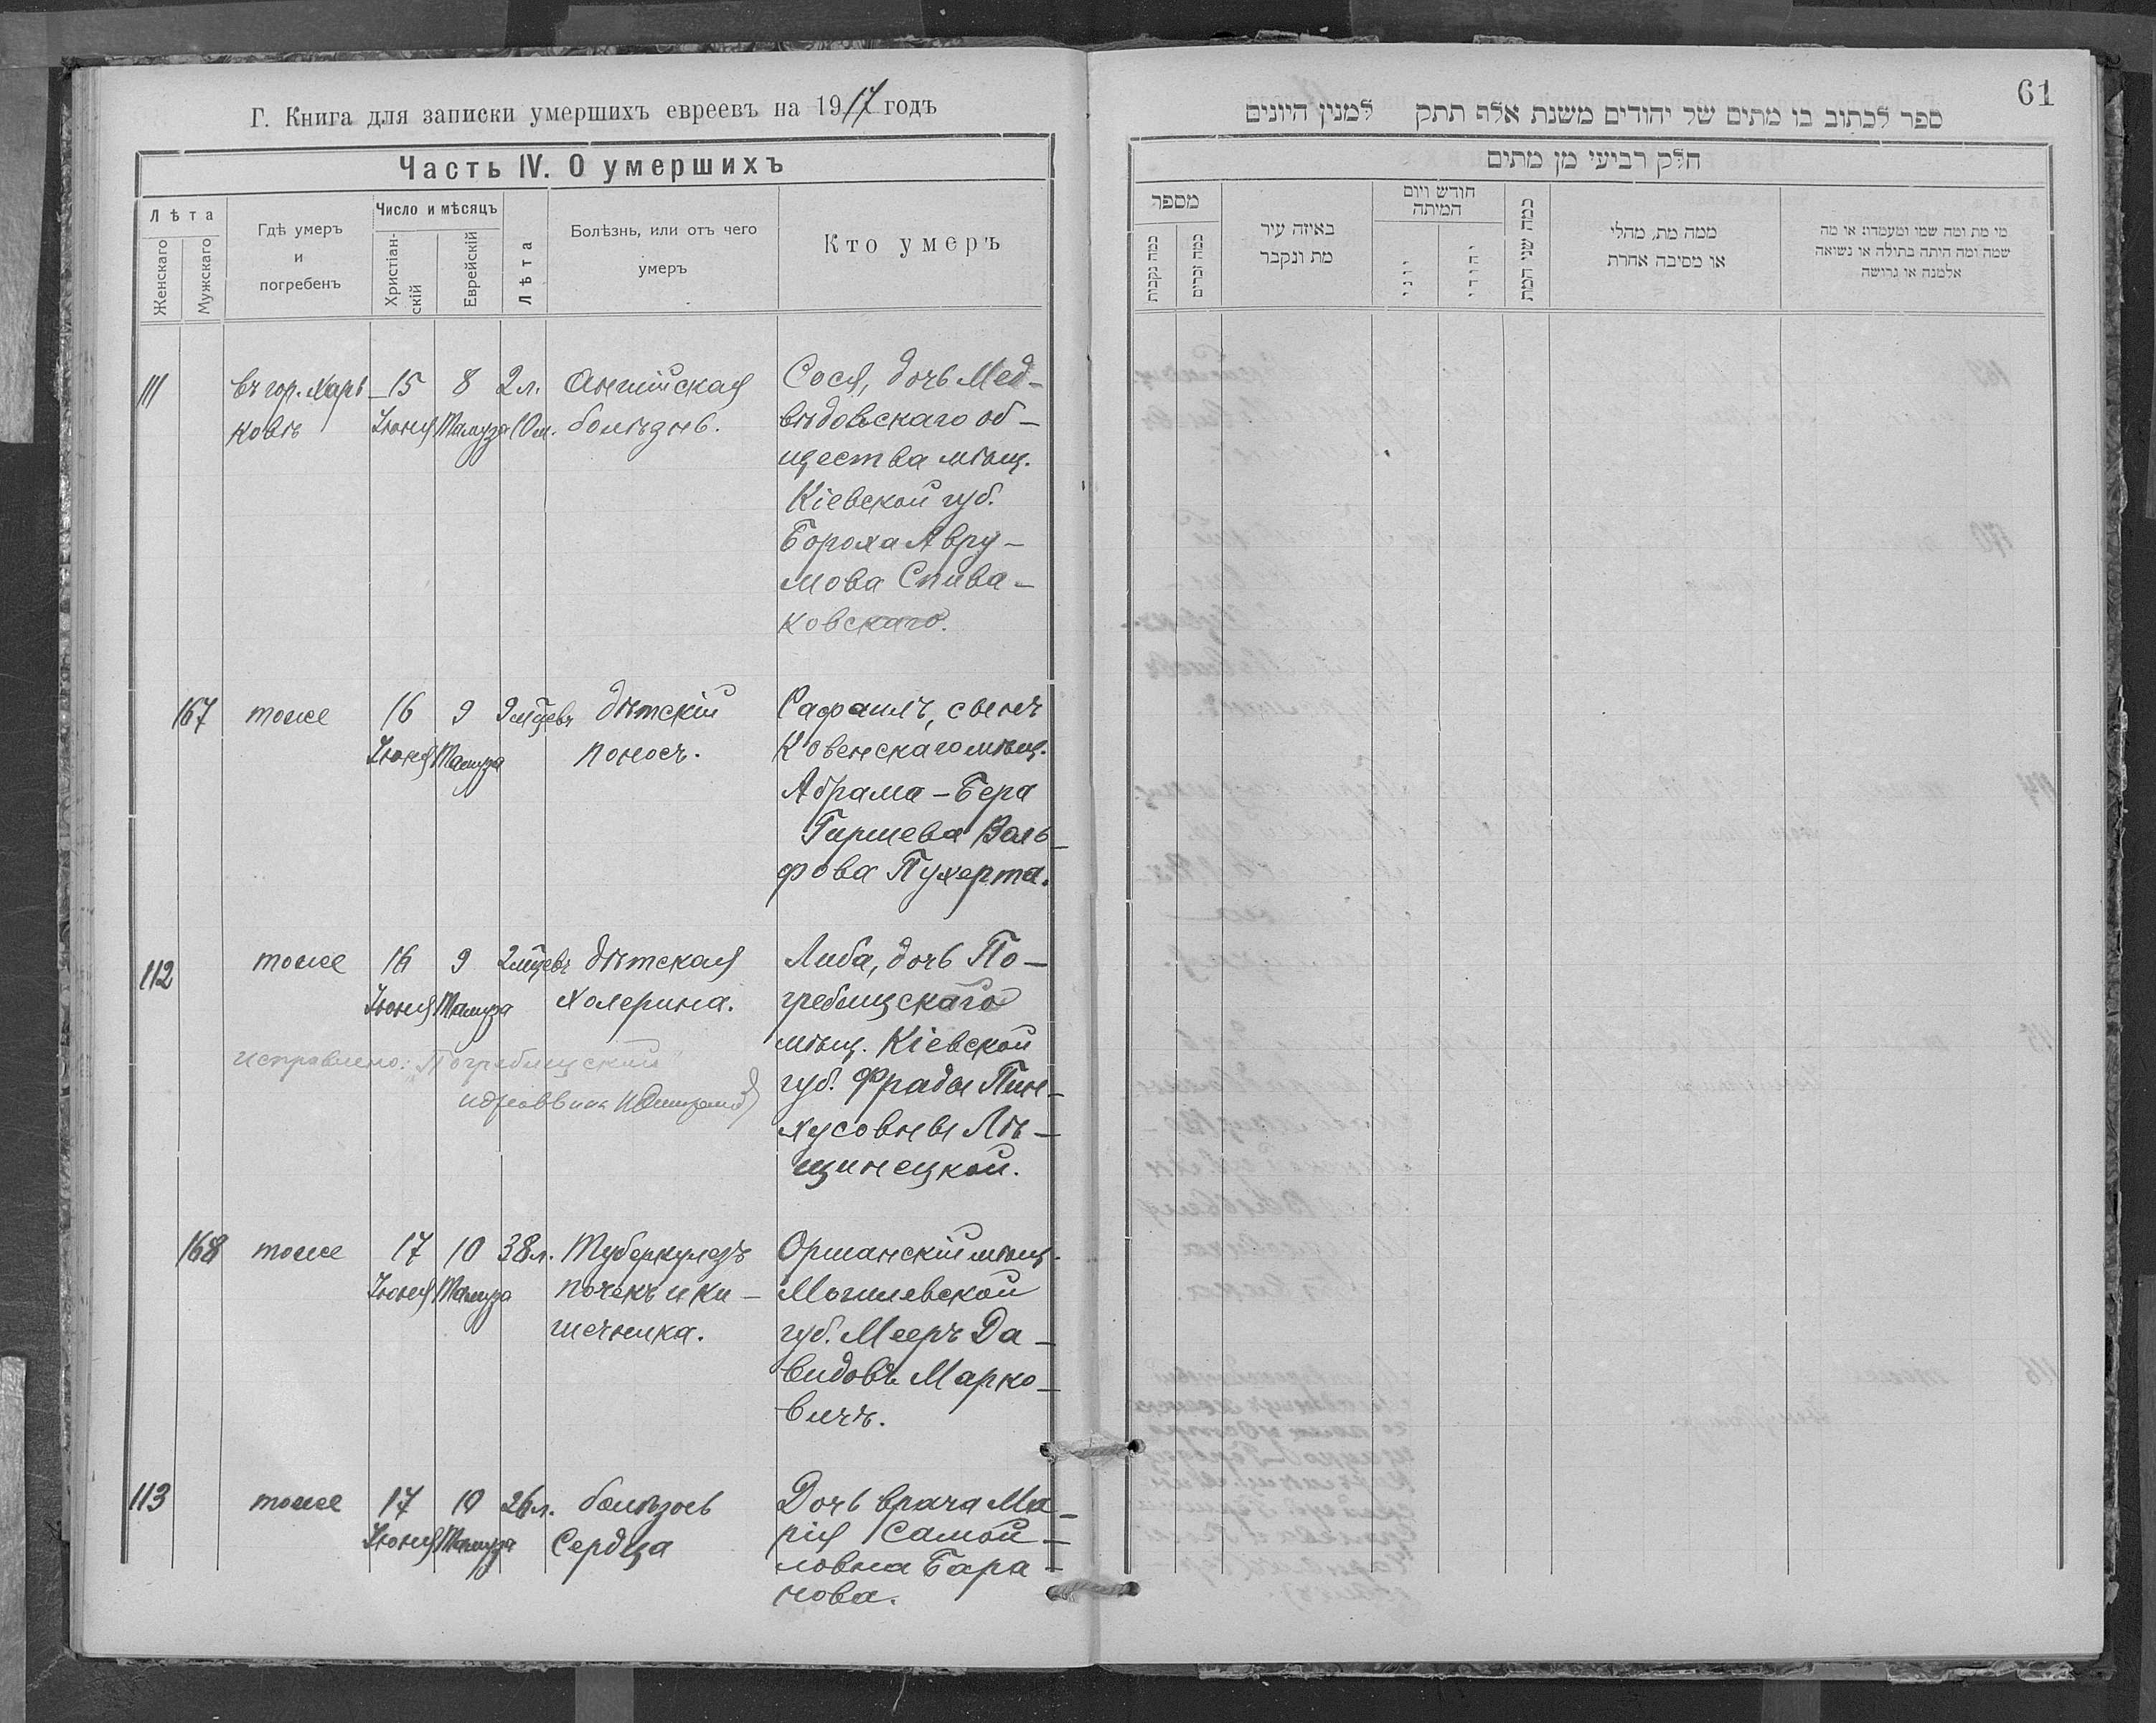 Г. Книга для записки умершихъ евреевъ на 1917 годъ
Часть IV. О умершихъ
Лѣта
Женскаго
Мужскаго
Гдѣ умеръ
и
погребенъ
Число и мѣсяцъ
Христіан-
скій
Еврейскій
Лѣта
Болѣзнь, или отъ чего
умеръ
Кто умеръ
111 въ гор. Харь- 15 8 2 л. Английская Сося, дочь Мед-
ковѣ Іюня Тамуза 10 м. болѣзнь. вѣдовскаго об-
щества мѣщ.
Кіевской губ.
Бороха Авру-
мова Спива-
ковскаго.
167 тоже 16 9 9 мѣцевъ дѣтскій Рафаилъ, сынъ
Іюня Тамуза поносъ. Ковенскаго мѣщ.
Абрама-Бера
Гиршева Воль-
фова Пухерта.
112 тоже 16 9 2 мѣцевъ дѣтская Либа, дочь По-
Іюня Тамуза холерина. гребищскаго
мѣщ. Кіевской
исправлено: Погребищской
губ. Фрады Пин-
хусовны Лѣ-
щинецкой.
168 тоже 17 10 38 л. Туберкулезъ Оршанскій мѣщ.
Іюня Тамуза почекъ и ки- Могилевской
шечника. губ. Мееръ Да-
видовъ Марко-
вичъ.
113 тоже 17 10 26 л. болѣзнь Дочь врача Ма-
Іюня Тамуза Сердца рія Самой-
ловна Бара-
нова.
61
ספר לכתוב בו מתים של יהודים משנת אלף תתק למנין היונים
חלק רביעי מן מתים
מספר
כמה נקבות
כמה זכרים
באיזה עיר
מת ונקבר
חודש ויום
המיתה
יוני
יהודי
כמה שני המת
ממה מת, מחלי
או מסיבה אחרת
מי מת ומה שמו ומעמדו: או מה
שמה ומה היתה בתולה או נשואה
אלמנה או גרושה